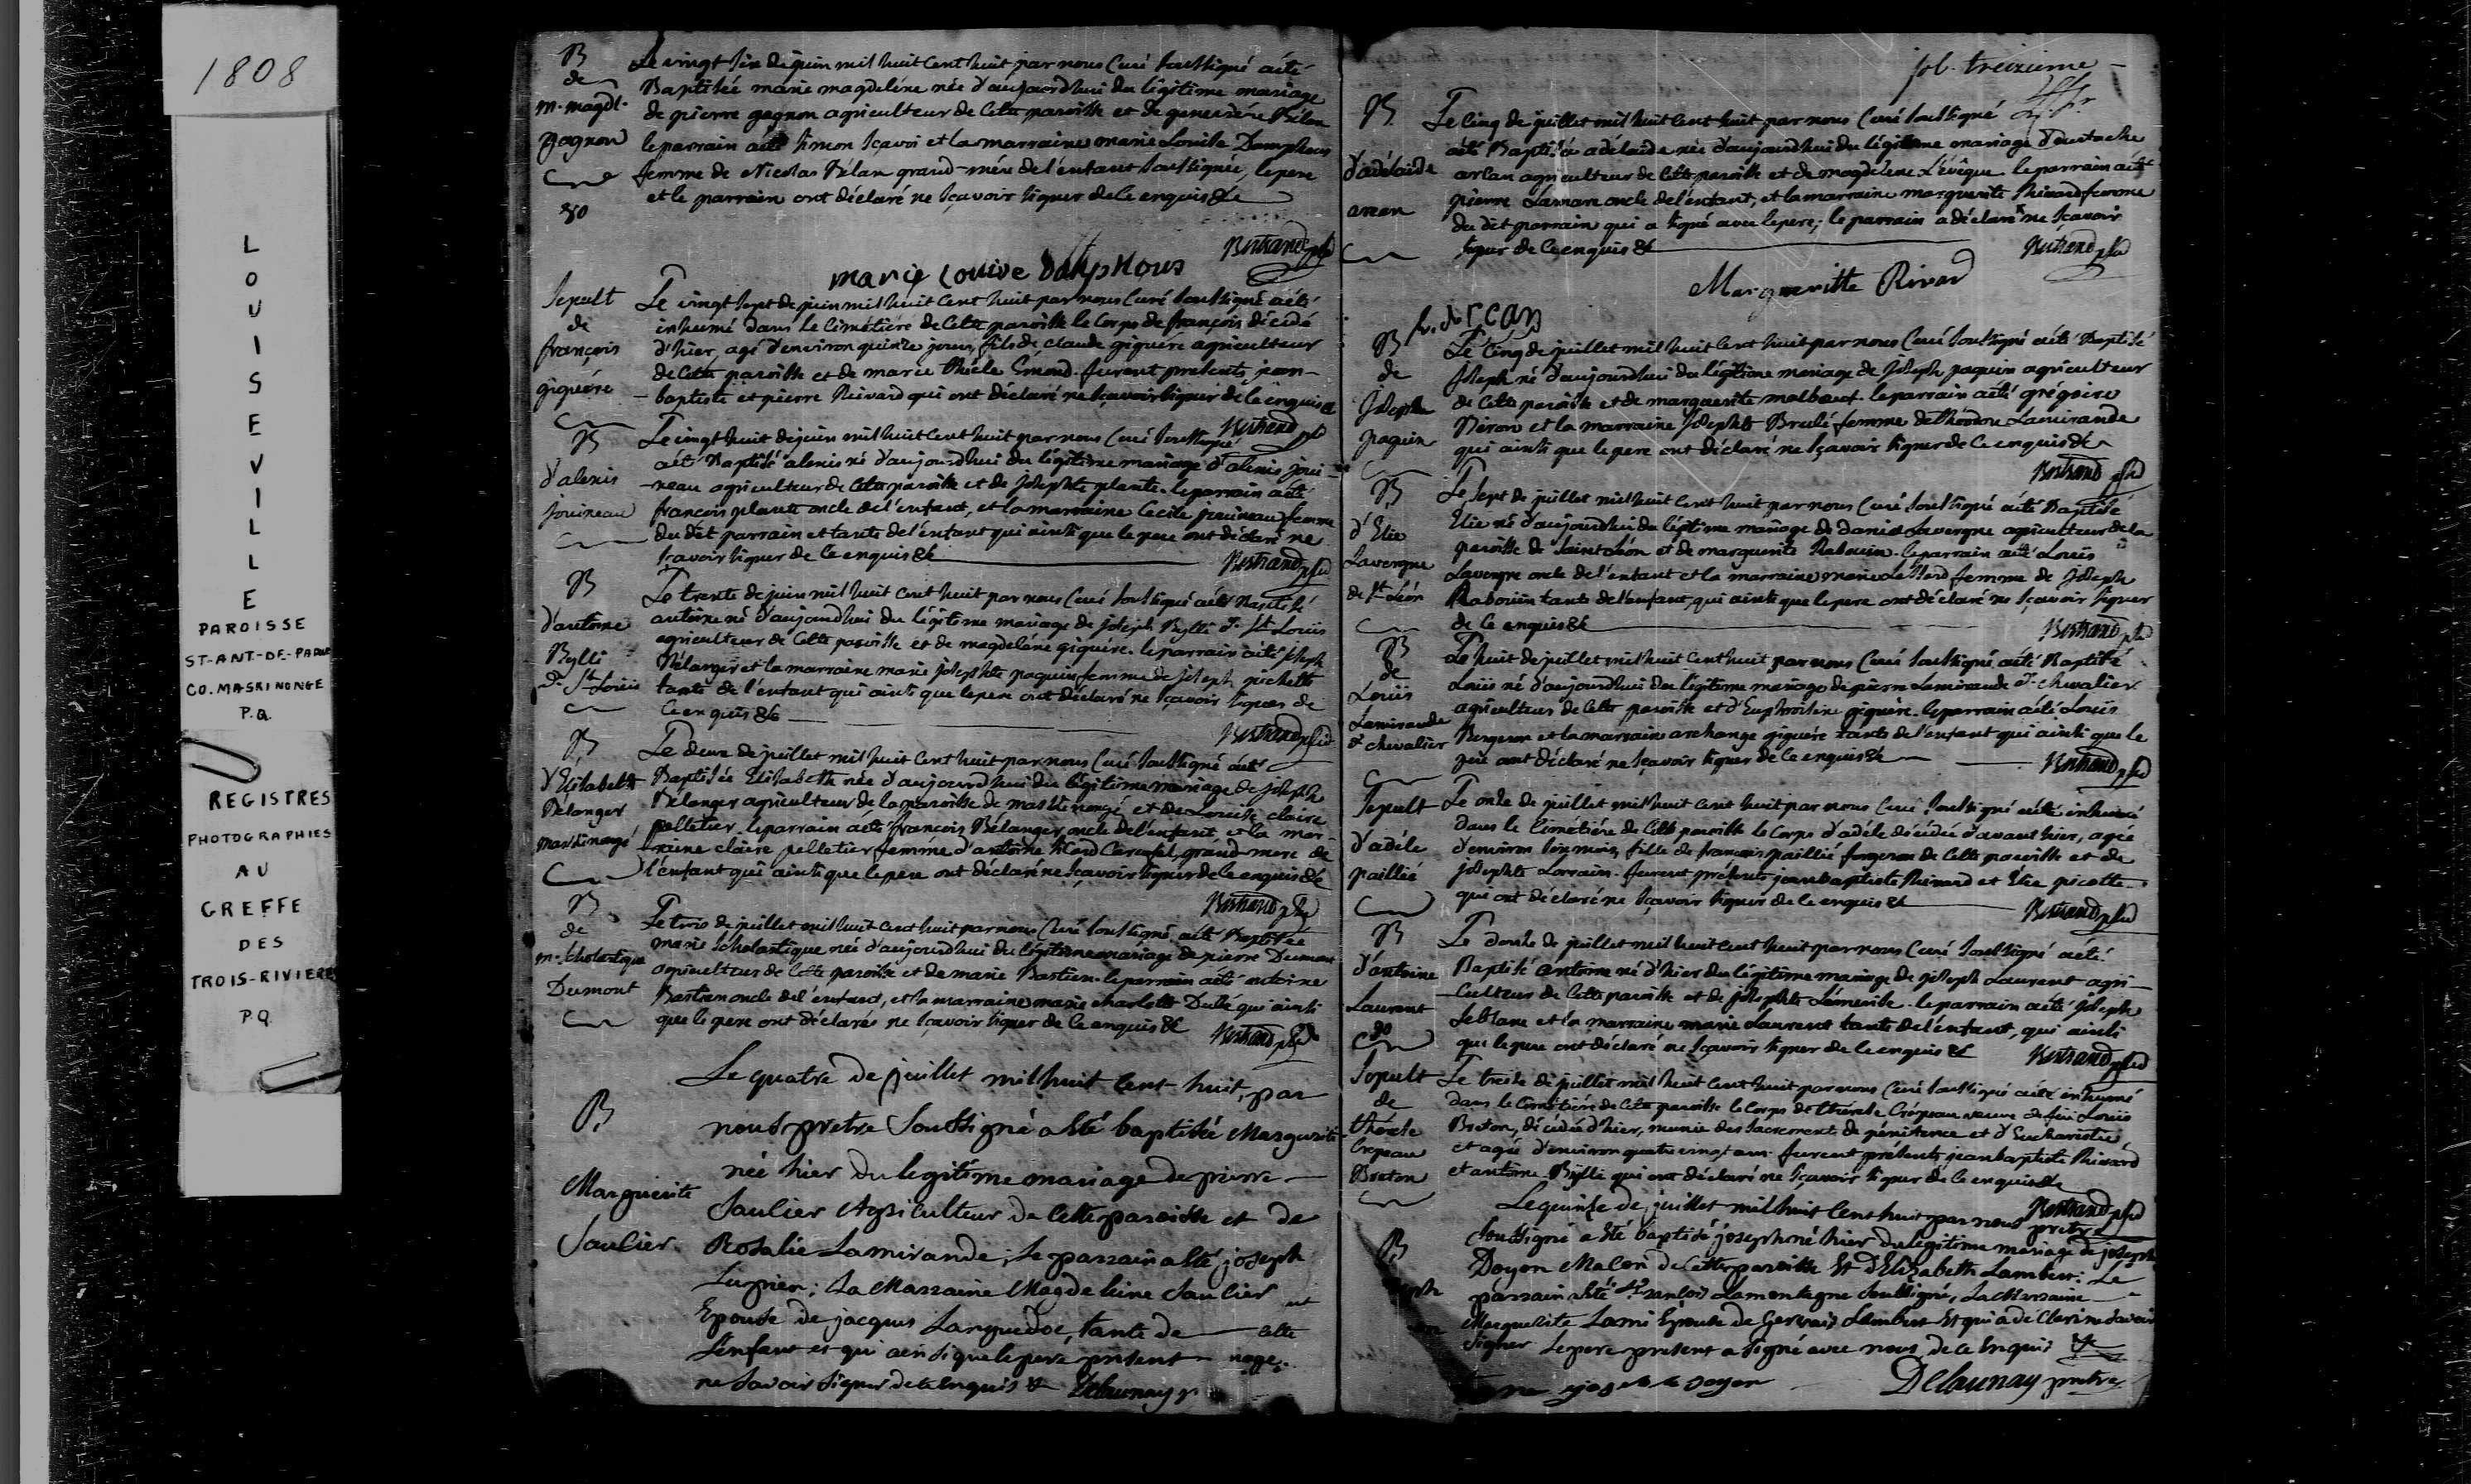 1808
LOUISEVILLE
PAROISSE
ST-ANT-DE-PADOUE
CO. MASKINONGE
P.Q.
REGISTRES
PHOTOGRAPHIES
AU
GREFFE
DES
TROIS-RIVIERES
P.Q.
B
de
m. magdl.
gagnon
80
Le vingt six de juin mil huit cent huit par nous Curé soussigné a été
Baptisée marie magdeléne née d'aujourdhui du légitime mariage
de pierre gagnon agriculteur de cette paroisse et de genevieve Bélan
le parrain a été simon sçavoi et la marraine marie Louise Damphous
femme de Nicolas Bélan grand-mére de l'enfant soussignée, le pere
et le parrain ont déclaré ne sçavoir signer de ce enquis &c
Bertrand ptre
marie Louise Damphous
Sepult
de
françois
giguére
Le vingt sept de juin mil huit cent huit par nous Curé soussigné a été
inhumé dans le cimetiére de cette paroisse le corps de françois décédé
d'hier, agé d'environ quinze jours, fils de claude giguére agriculteur
de cette paroisse et de marie thiéle Emond. furent présents jean-
baptiste et pierre Rivard qui ont déclaré ne sçavoir signer de ce enquis &
Bertrand ptre
B
d'alexis
jouineau
Le vingt huit de juin mil huit cent huit par nous Curé soussigné
a été Baptisé alexis né d'aujourdhui du légitime mariage d'alexis joui-
neau agriculteur de cette paroisse et de josephte plante. le parrain a été
françois plante oncle de l'enfant, et la marraine Cecile jouineau femme
du dit parrain et tante de l'enfant qui ainsi que le pere ont déclaré ne
sçavoir signer de ce enquis &c
Bertrand ptre
B
d'antoine
Bylli
d. St Louis
Le trente de juin mil huit cent huit par nous Curé soussigné a été Baptisé
antoine né d'aujourdhui du légitime mariage de joseph Bylli d. St Louis
agriculteur de cette paroisse et de magdeléne giguére. le parrain a été joseph
Bélanger et la marraine marie josephte paquin femme de joseph pichette
tante de l'enfant qui ainsi que le pere ont déclaré ne sçavoir signer de
ce enquis &c
Bertrand ptre
B
d'Elisabeth
Bélanger
maskinongé
Le deux de juillet mil huit cent huit par nous Curé soussigné a été
Baptisée Elisabeth née d'aujourdhui du légitime mariage de joseph
Bélanger agriculteur de la paroisse de maskinongé et de Louise claire
pelletier. le parrain a été françois Bélanger oncle de l'enfant et la mar-
raine claire pelletier femme d'antoine sicard Carufel, grand-mere de
l'enfant qui ainsi que le pere ont déclaré ne sçavoir signer de ce enquis &c
Bertrand ptre
B
de
m. scholastique
Dumont
Le trois de juillet mil huit cent huit par nous Curé soussigné a été Baptisée
marie scholastique née d'aujourdhui du légitime mariage de pierre Dumont
agriculteur de cette paroisse et de marie Bastien. le parrain a été antoine
Bastien oncle de l'enfant, et la marraine marie charlotte Dubé qui ainsi
que le pere ont déclarés ne sçavoir signer de ce enquis &c
Bertrand ptre
B
Marguerite
Saulier
Le quatre de juillet mil huit cent huit, par
nous prêtre soussigné a été baptisée Marguerite
née hier du legitime mariage de pierre
Saulier Agriculteur de cette paroisse et de
Rosalie Lamirande; Le parrain a été joseph
Lupien; La Marraine Magdeleine Saulier
Epouse de jacques Languedoc, tante de
L'enfant et qui ainsi que le pere présent
ne savoir signer de ce enquis & Delaunay p
fol. treizieme
B
d'adélaide
arcan
Le cinq de juillet mil huit cent huit par nous Curé soussigné
a été Baptisée adélaide née d'aujourdhui du légitime mariage d'eustache
arcan agriculteur de cette paroisse et de magdeléne L'évêque. le parrain a été
pierre Lamare oncle de l'enfant, et la marraine marguerite Rivard femme
du dit parrain qui a signé avec le pere; le parrain a déclaré ne sçavoir
signer de ce enquis &c
Bertrand ptre
Margueritte Rivard
Arcan
B
de
Joseph
paquin
Le cinq de juillet mil huit cent huit par nous Curé soussigné a été Baptisé
Joseph né d'aujourdhui du légitime mariage de Joseph paquin agriculteur
de cette paroisse et de marguerite malbeuf. le parrain a été grégoire
Biron et la marraine Josephte Brulé femme de theodore Lamirande
qui ainsi que le pere ont déclaré ne sçavoir signer de ce enquis &c
Bertrand ptre
B
d'Elie
Lavergne
de St Léon
Le sept de juillet mil huit cent huit par nous Curé soussigné a été Baptisé
Elie né d'aujourdhui du légitime mariage de daniel Lavergne agriculteur de la
paroisse de saint Léon et de marguerite Rabouin. le parrain a été Louis
Lavergne oncle de l'enfant et la marraine marie femme de Joseph
Rabouin tante de l'enfant, qui ainsi que le pere ont déclaré ne sçavoir signer
de ce enquis &c
Bertrand ptre
B
de
Louis
Lamirande
d. chevalier
Le huit de juillet mil huit cent huit par nous Curé soussigné a été Baptisé
Louis né d'aujourdhui du légitime mariage de pierre Lamirande d. chevalier
agriculteur de cette paroisse et d'Euphrosine giguére. le parrain a été Louis
Bergeron et la marraine archange giguére tante de l'enfant qui ainsi que le
pere ont déclaré ne sçavoir signer de ce enquis &c
Bertrand ptre
Sepult
d'adéle
paillié
Le onze de juillet mil huit cent huit par nous Curé soussigné a été inhumé
dans le cimetiére de cette paroisse le corps d'adéle décédée d'avant hier, agée
d'environ six mois, fille de françois paillié forgeron de cette paroisse et de
josephte Lorrain. furent présents jean baptiste Rivard et Elie picotte
qui ont déclaré ne sçavoir signer de ce enquis &c
Bertrand ptre
B
d'antoine
Laurent
Le douze de juillet mil huit cent huit par nous Curé soussigné a été
Baptisé antoine né d'hier du légitime mariage de joseph Laurent agri-
culteur de cette paroisse et de josephte Lémerise. le parrain a été Joseph
Leblanc et la marraine marie Laurent tante de l'enfant, qui ainsi
que le pere ont déclaré ne sçavoir signer de ce enquis &c
Bertrand ptre
Sepult
de
thérese
Crepeau
Breton
Le treize de juillet mil huit cent huit par nous Curé soussigné a été inhumé
dans le cimetiére de cette paroisse le corps de thérese Crépeau veuve de feu Louis
Breton, décédée d'hier, munie des sacrements de pénitence et d'Eucharistie
et agée d'environ quatre vingt ans. furent présents jean baptiste Rivard
et antoine Bylli qui ont déclaré ne sçavoir signer de ce enquis &c
Bertrand ptre
B
Le quinze de juillet mil huit cent huit par nous pretre
soussigné a été baptisé joseph né hier du légitime mariage de joseph
Doyon Maçon de cette paroisse Et d'Elizabeth Lambert: Le
parrain a été françois Lamontagne soussigné, La Marraine
Marguerite Lami Epouse de Gervais Lambert Et qui a déclaré ne savoir
signer Le pere present a signé avec nous de ce enquis &c
joseph Doyon
Delaunay pretre